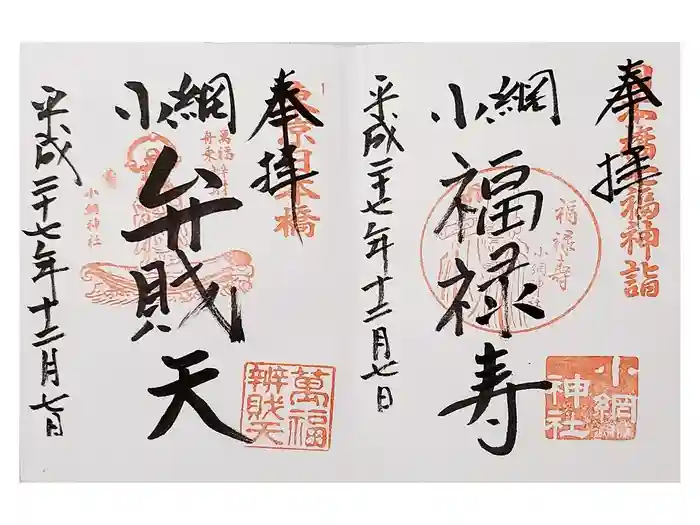 奉拝
日本橋七福神詣
小網
福禄寿
福禄寿
小網神社
小網神社
平成二十七年十二月七日
奉拝
東京日本橋
小網
弁財天
萬福
舟乗弁財天
小網神社
萬福
辨財天
平成二十七年十二月七日